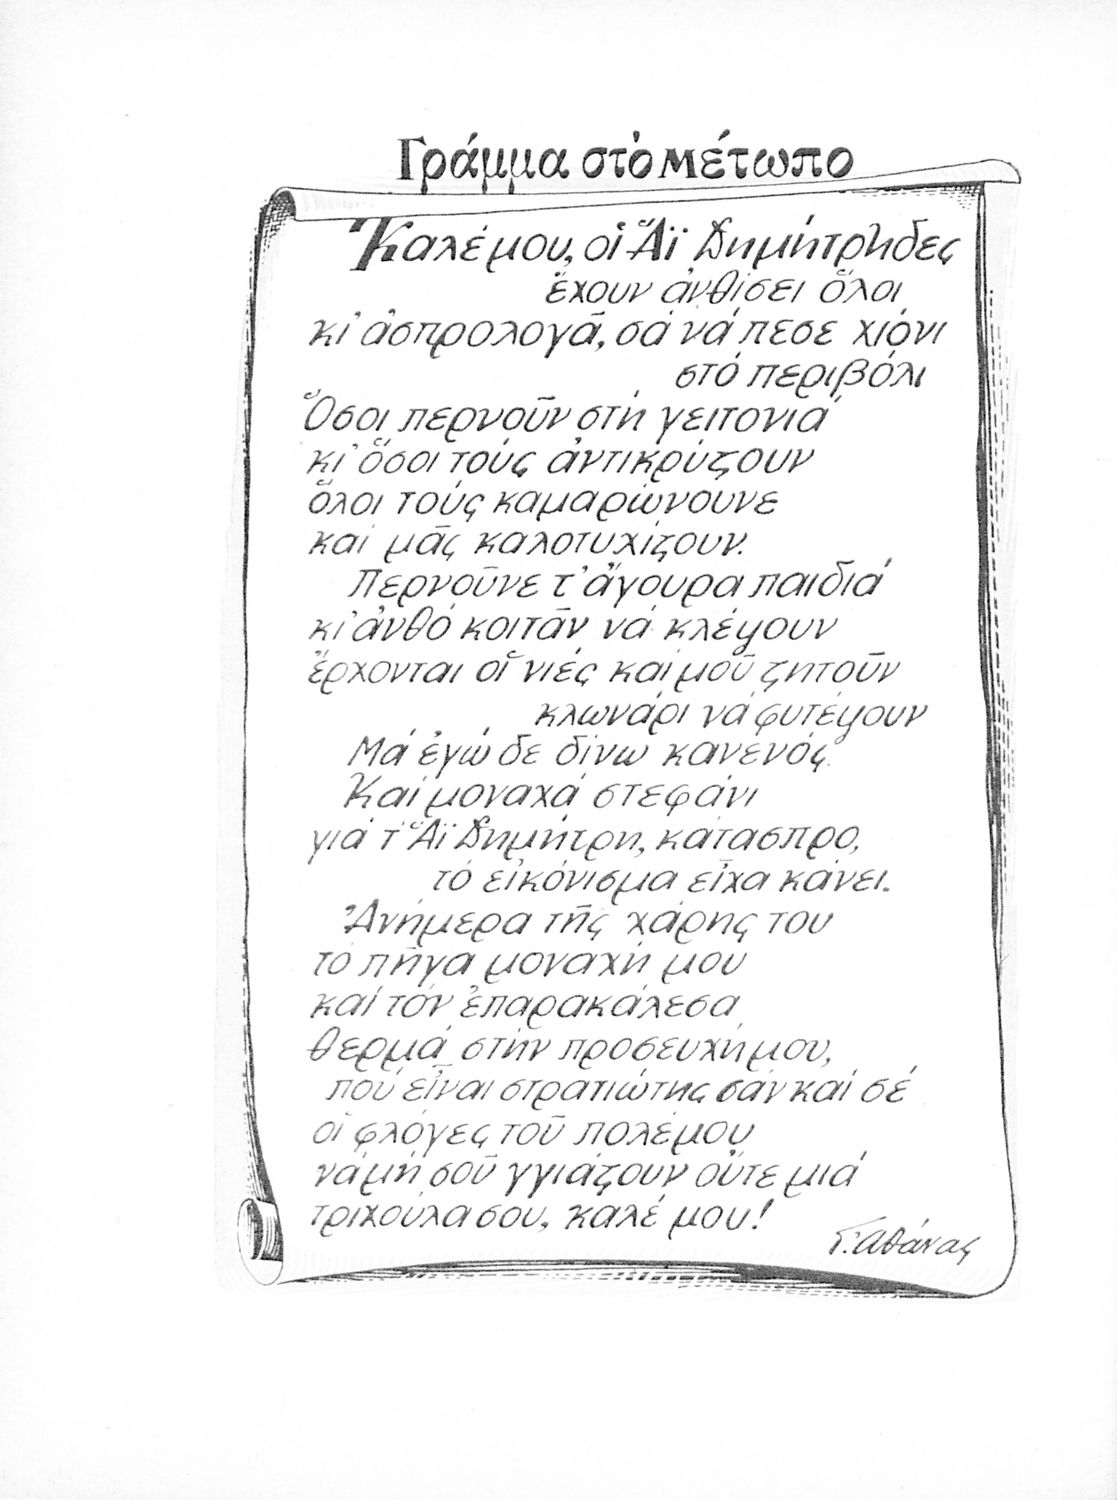 Γράμμα στὸ μέτωπο
Καλέ μου, οἱ Ἅϊ Δημήτρηδες
ἔχουν ἀνθίσει ὅλοι
κι' ἀσπρολογᾶ, σά νά πεσε χιόνι
στό περιβόλι
Ὅσοι περνοῦν στή γειτονιά
κι' ὅσοι τούς ἀντικρύζουν
ὅλοι τούς καμαρώνουνε
καί μᾶς καλοτυχίζουν.
Περνοῦνε τ' ἄγουρα παιδιά
κι' ἀνθό κοιτᾶν νά κλέψουν
ἔρχονται οἱ νιές καί μοῦ ζητοῦν
κλωνάρι νά φυτέψουν
Μά ἐγώ δε δίνω κανενός.
Καί μοναχά στεφάνι
γιά τ' Ἅϊ Δημήτρη, κάτασπρο,
τό εἰκόνισμα εἶχα κάνει.
Ἀνήμερα τῆς χάρης του
τό πῆγα μοναχή μου
καί τόν ἐπαρακάλεσα
θερμά στήν προσευχή μου,
πού εἶναι στρατιώτης σάν καί σέ
οἱ φλόγες τοῦ πολέμου
νά μή σοῦ γγιάζουν οὔτε μιά
τριχούλα σου, καλέ μου!
Γ. Ἀθάνας